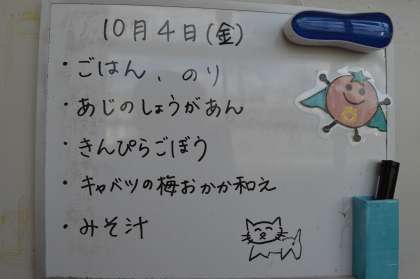 10月4日(金)
・ごはん、のり
・あじのしょうがあん
・きんぴらごぼう
・キャベツの梅おかか和え
・みそ汁